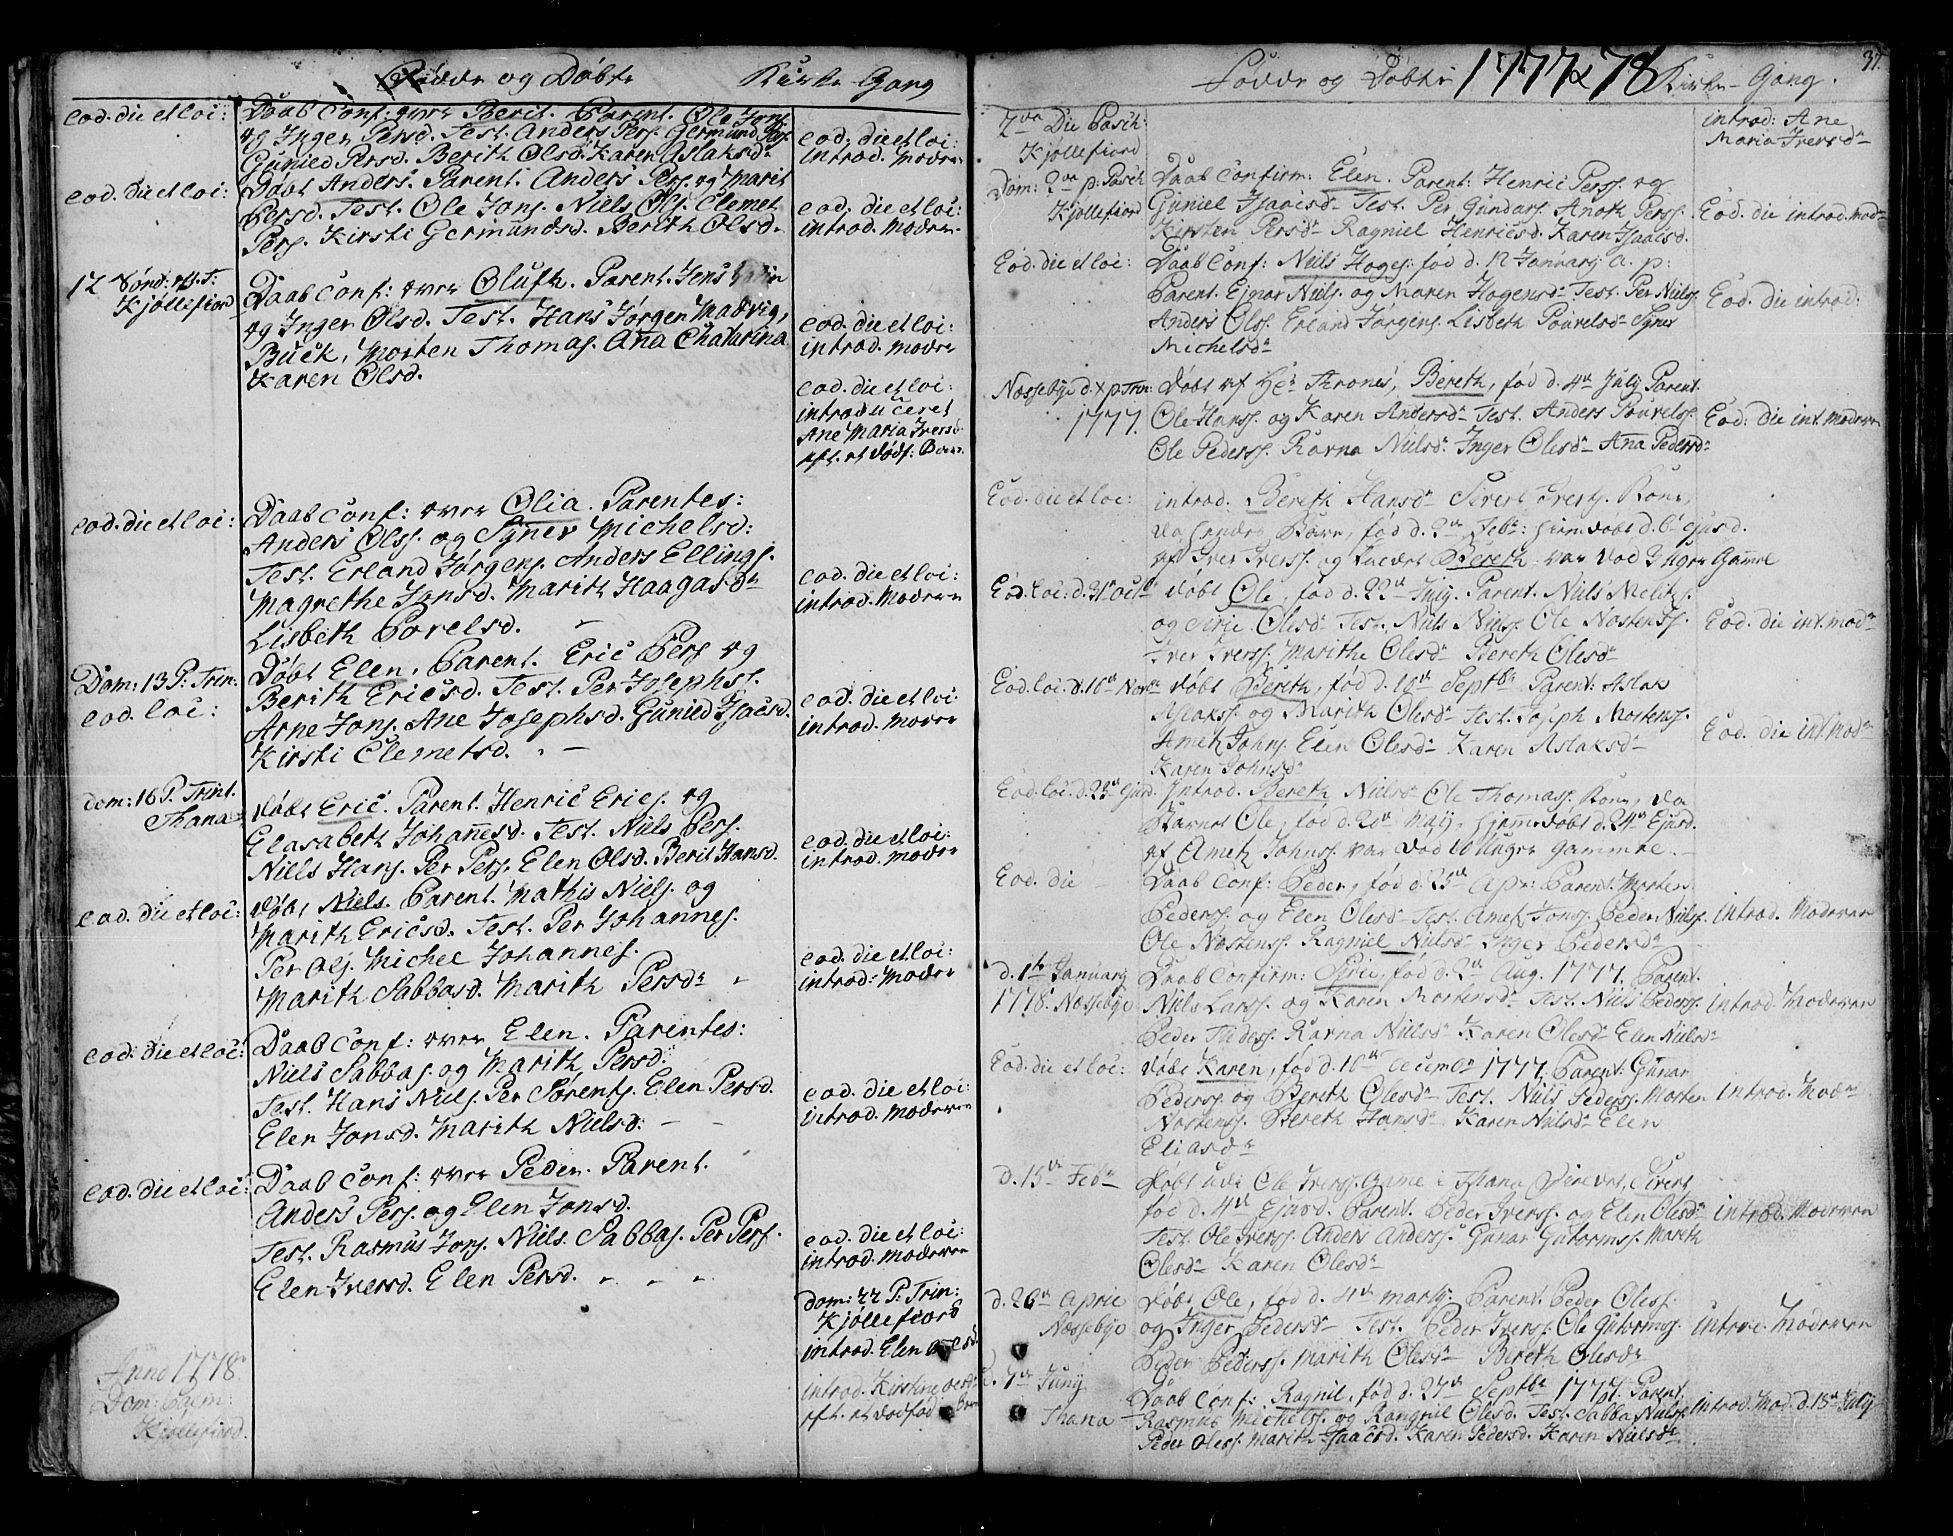 Födde og Döbte
Kirke-Gang
eod. die et loc:
Daab Conf: over Berit. Parent. Ole Jons.
og Inger Persd. Test. Anders Pers. Germund Pers.
Gunied Persd. Berith Olsd. Karen Aslaksdr
eod. die et loc:
introd. Modren
eod. die et loc:
Døbt Anders. Parent. Anders Pers. og Marit
Persd. Test. Ole Jons. Niels Ols. Clemet
Pers. Kirsti Germundsd. Berith Olsd.
eod. die et loc:
introd. Modren.
12 Sønd: p. T:
Kjöllefiord
Daab Conf: over Oluff. Parent. Jens
og Inger Olsd. Test. Hans Jörgen Madvig,
Buck, Morten Thomas. Ana Chatarina
Karen Olsd.
eod. die et loc:
introd. Modren
eod. die et loc:
introduceret
Ane Maria Iversd
eft. et dödf: Barn.
eod. die et loc:
Daab Conf: over Olia. Parentes:
Anders Olss. og Synev Michelsd:
Test. Erland Jörgens. Anders Ellings.
Magrethe Jonsd. Marith Haagasdr
Lisbeth Povelsd.
eod. die et loc:
introd. Modren
Dom: 13 P: Trin:
eod. loc:
Døbt Elen. Parent. Eric Pers og
Berith Ericsd. Test. Per Josephs.
Arne Jons. Ane Josephsd. Gunied Isacsd.
Kirsti Clemetsd.
eod. die et loc:
introd. Modren
dom: 16 P. Trint.
Thana
døbt Eric. Parent. Henric Erics. og
Elasabeth Johannesd. Test. Niels Pers.
Niels Hans. Per Pers. Elen Olsd. Berit Hansd.
eod. die et loc:
introd. modren
eod. die et loc:
døbt Niels. Parent. Mathis Niels. og
Marith Ericsd. Test. Per Johannes.
Per Ols. Michel Johannes.
Marith Sabbasd. Marith Persdr
eod. die et loc:
introd: Modren
eod. die et loc:
Daab Conf: over Elen. Parentes:
Niels Sabbas. og Marith Persd.
Test. Hans Niels. Per Sörents. Elen Persd.
Elen Jonsd. Marith Nielsd.
eod. die et loc:
introd. Moderen
eod. die et loc:
Daab Conf: over Peder. Parent.
Anders Pers. og Elen Jonsd.
Test. Rasmus Jons. Niels Sabbas. Per Pers.
Elen Iversd. Elen Persd.
eod. die et loc:
introd. Moderen
dom: 22 P: Trin:
Kjöllefiord
introd. Elen
Anno 1778.
Dom: Palm:
Kjöllefiord.
introd. Kirstine
eft. et dödfød Barn
Fødde og Døbte 1777 & 78 Kirke-Gang.
37.
2da Die Pasch:
Kjöllefiord
introd: Ane
Maria Iversdr
Dom: 2da p. Pasch
Kjöllefiord
Daab Confirm: Elen. Parent: Henric Perss. og
Guniel Isaacsdr Test. Per Gundars. Anoth Perss.
Kirsten Persdr Ragniel Henricsd. Karen Isaacsd.
Eod. die introd. modr
Eod. die et loc:
Daab Conf: Niels Hoges. fød d. 12 January a. p:
Parent. Ejnar Niels. og Maren Hogensdr Test. Per Niels.
Anders Olss. Erland Jørgens. Lisbeth Povelsdr Synev
Michelsdr
Eod. die introd:
Nessebye d. X p Trin:
1777.
døbt af Hr. Thrones, Bereth, fød d. 4de July Parent.
Ole Hanss. og Karen Andersdr Test. Anders Povelss.
Ole Pederss. Ravna Nielsdr Inger Olesdr Ana Pedersdr
Eod: die int. Moderen
Eod. die et loc:
introd. Bereth Hansdr Sivert Ivers. Kone,
fød d. 2de Febr: hjemdøbt d. 6 ejusd.
af Iver Iverss. og kaldet Bereth. var ved 3 Uger Gammel
Eod. loc: d. 31te Octr
døbt Ole, fød d. 22de July. Parent. Niels Melits.
og Sirie Olesdr Test. Niels Nielss. Ole Nostenss.
Iver Iverss. Marithe Olesdr Bereth Olesdr
Eod. die int. modr
Eod. loc. d. 16de Novr
døbt Bereth, fød d. 10de Septbr Parent: Aslak
Aslakss. og Marith Olesdr Test. Joseph Mortens.
Amet Johns. Elen Olesdr Karen Aslaksdr
Karen Johnsdr
Eod. die int. Modr
Eod. loc. d. 23de Ejusd.
introd. Bereth Nielsdr Ole Thomass. Kone, da
Barnet Ole, fød d. 20de May, hjemdøbt d. 24de Ejusd.
af Amet Johns. var ved 10 Uger gammel.
Eod. die
Daab Conf: Peder, fød d. 25de Apr: Parent. Morten
Pederss. og Elen Olesdr Test. Amet Jonss. Peder Nielss.
Ole Nostenss. Ragniel Nielsdr Inger Pedersdr
introd. Moderen
d. 1te January
1778. Nessebye
Daab Confirm: Sirie, fød d. 2de Aug. 1777. Parent.
Niels Larss. og Karen Mortensdr Test. Niels Pederss.
Peder Pederss. Ravna Nielsdr Karen Olesdr Elen Nielsdr
introd. Moderen
Eod. die et loc:
døbt Karen, fød d. 16de decembr 1777. Parent: Gunar
Pederss. og Bereth Olesdr Test. Niels Pederss. Morten
Nostenss. Bereth Hansdr Karen Nielsdr Elen
Eliasdr
introd. Modr
d. 15de Febr
døbt udi Ole Iverss. Game i Thana Sivert,
fød d. 4de Ejusd. Parent. Peder Iverss. og Elen Olesdr
Test. Ole Iverss. Anders Anderss. Gunar Gutormss. Marith
Olesdr Karen Olesdr
introd. Moderen
d. 26de April
Nessebye
døbt Ole, fød d. 4de Marty. Parent. Peder Oless.
og Inger Pedersdr Test. Peder Iverss. Ole Gutormss.
Peder Pederss. Marith Olesdr Bereth Olesdr
introd. Moderen
d. 7de Juny
Thana
Daab Conf: Ragnil, fød d. 27de Septbr 1777. Parent.
Rasmus Michelss. og Rangnil Olesd. Test. Sabba Nielss.
Peder Oless. Marith Isaacsd. Karen Pedersd. Karen Nielsdr
introd. Mod. d. 15de July